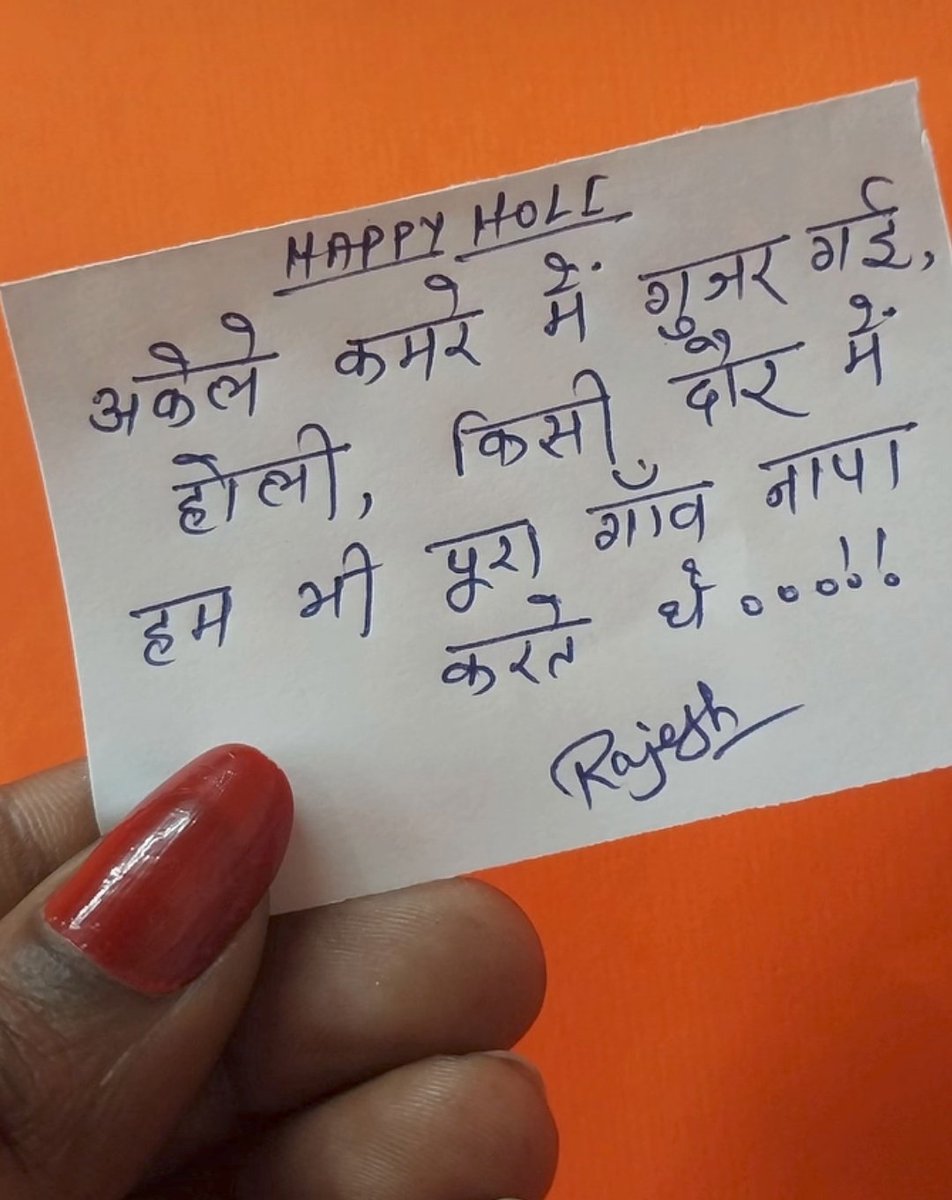 HAPPY HOLI
अकेले कमरे में गुजर गई,
होली, किसी दौर में
हम भी पूरा गाँव नापा
करते थे...!!
Rajesh